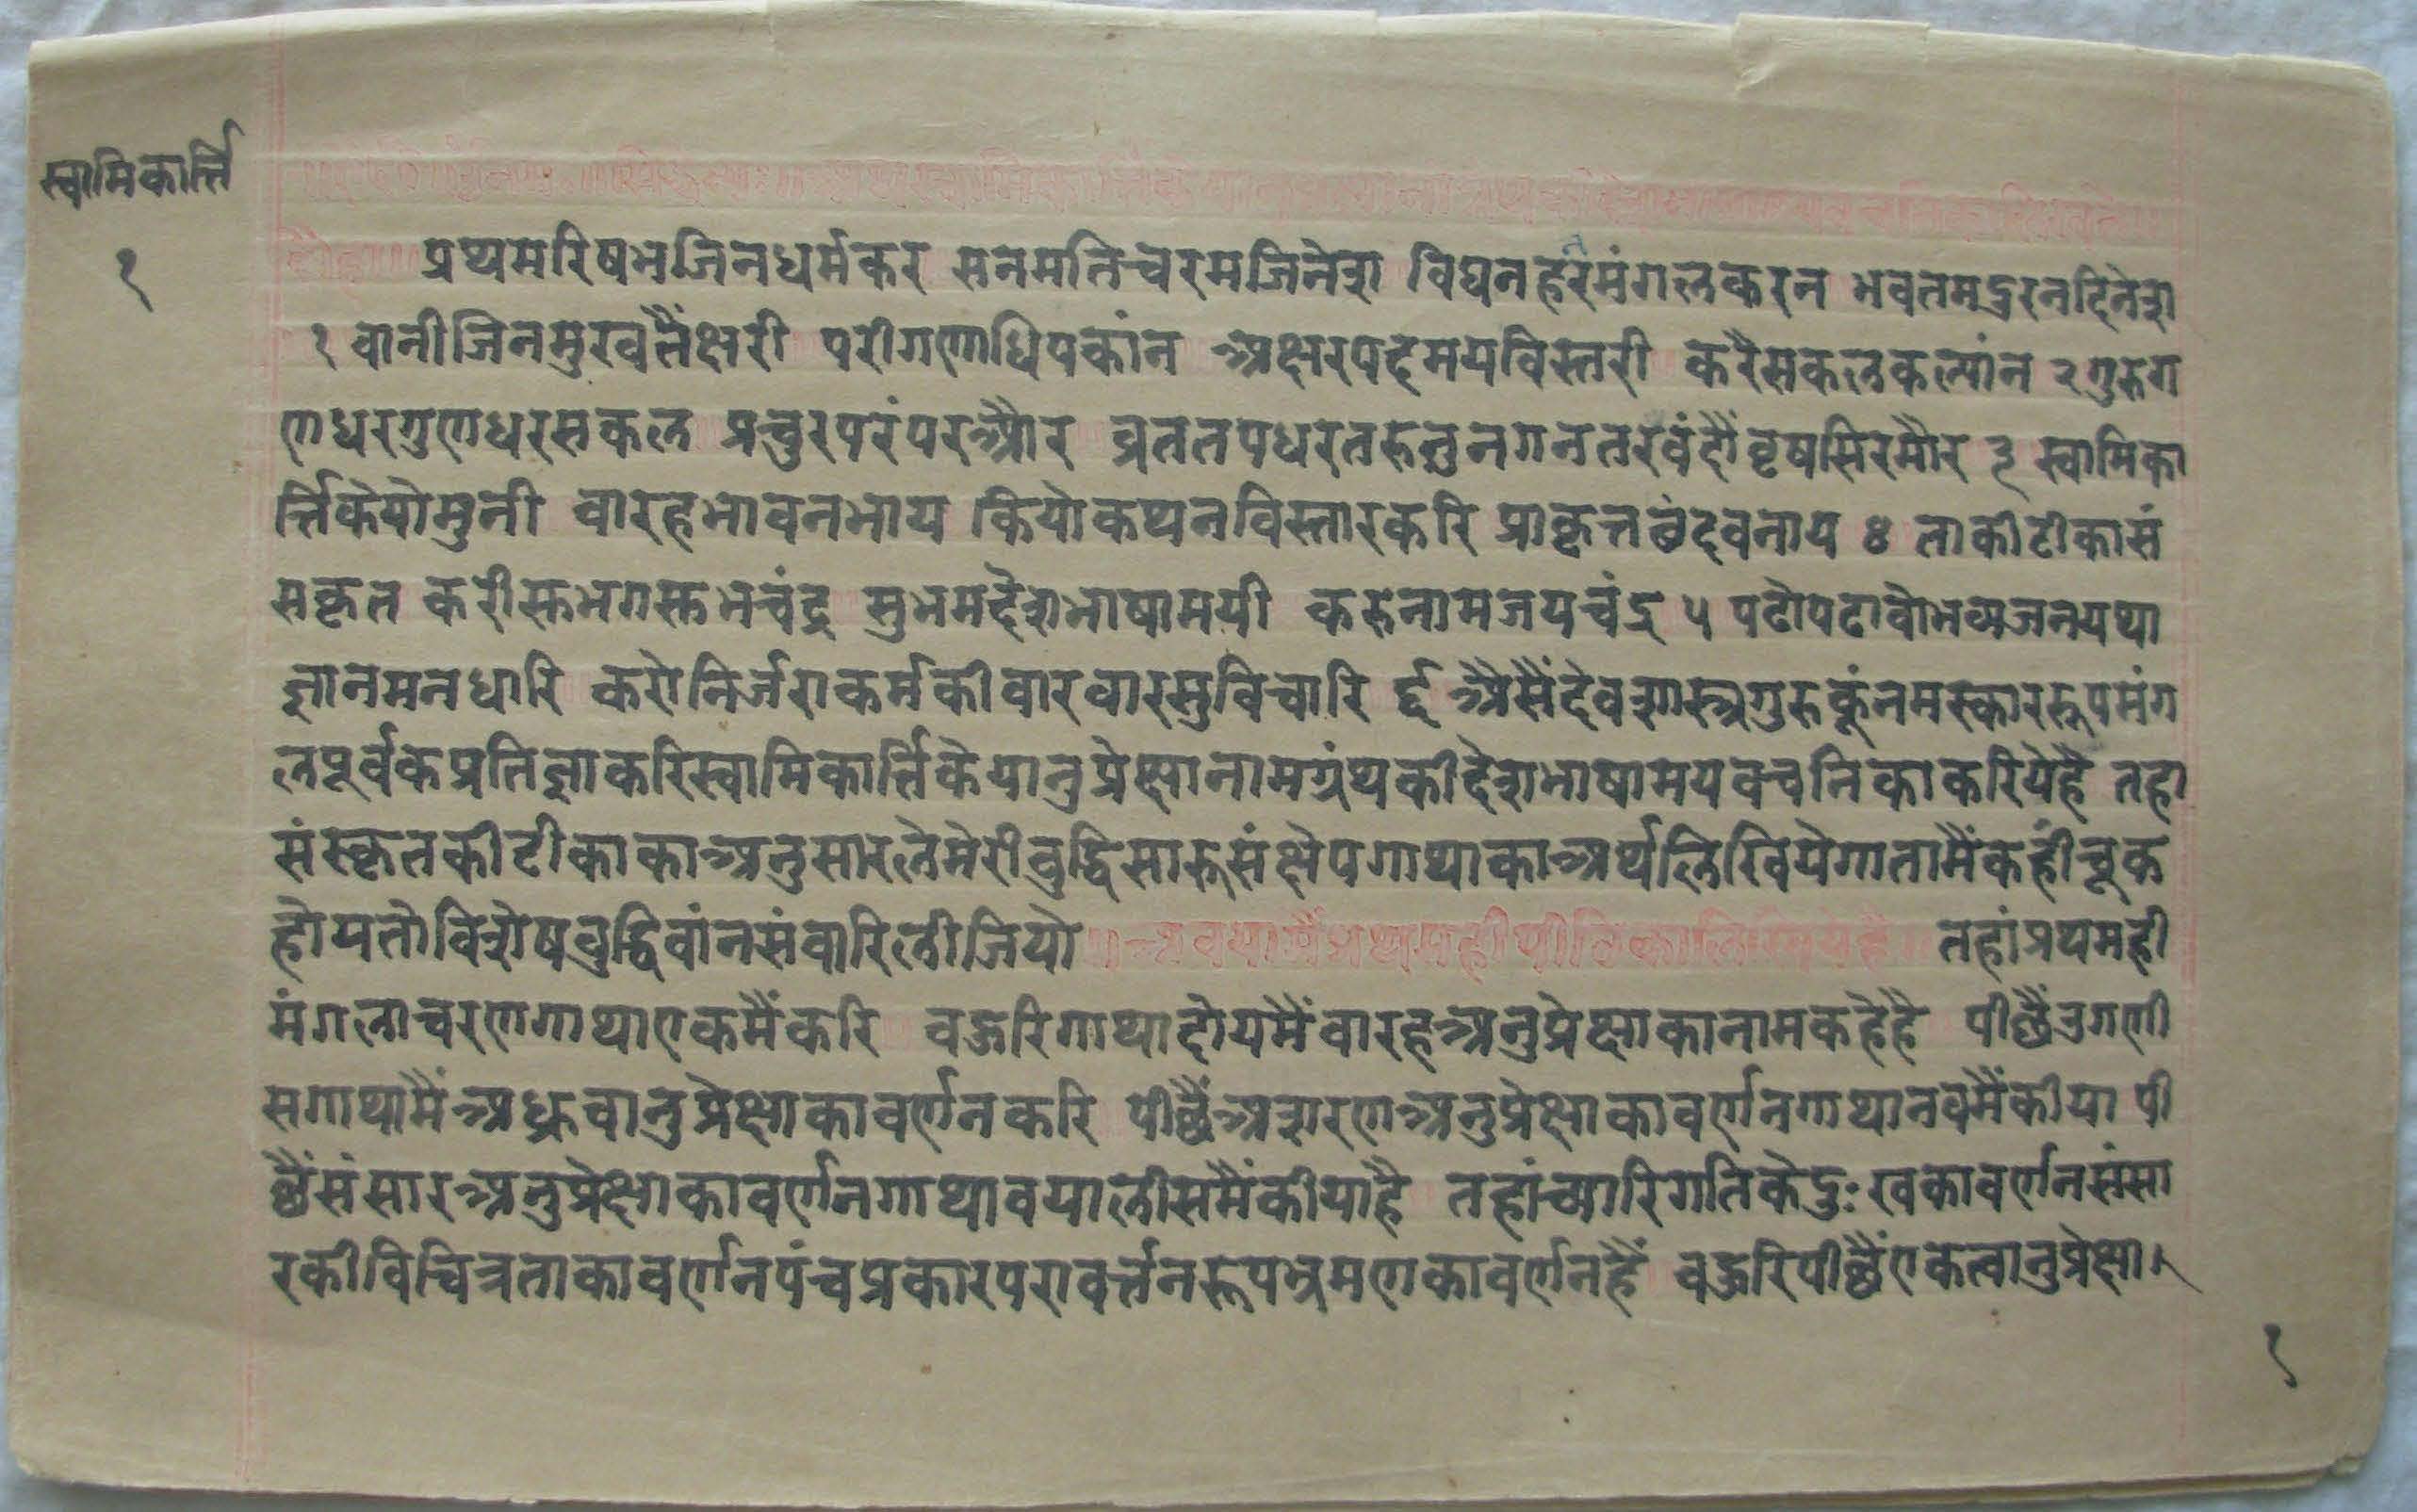 स्वामिकार्त्ति
१
॥ दोहा ॥ प्रथमरिषभजिनधर्मकर सनमतिचरमजिनेश विघनहरमंगलकरन भवतमदुरनदिनेश
१ वानीजिनमुखतैंक्षरी परीगणाधिपकांन अक्षरपदमयविस्तरी करैसकलकल्यांन २ गुरुग
णधरगुणधरसकल प्रचुरपरंपरऔर व्रततपधरतरुनुनगनतरवंदौंवृषसिरमौर ३ स्वामिका
र्त्तिकेयोमुनी वारहभावनभाय कियोकथनविस्तारकरि प्राकृत्तछंदवनाय ४ ताकीटीकासं
सकृत करीसुभगसुभचंद्र सुभमदेशभाषामयी करुनामजयचंद्र ५ पढोपढावोभव्यजनयथा
ज्ञानमनधारि करोनिर्जराकर्मकीवारवारसुविचारि ६ औसैंदेवशास्त्रगुरुकूंनमस्काररूपमंग
लपूर्वकप्रतिज्ञाकरिस्वामिकार्त्तिकेयानुप्रेक्षानामग्रंथकीदेशभाषामयवचनिकाकरियेहै तहा
संस्कृतकीटीकाकाअनुसारलेमेरीवुद्धिसारूसंक्षेपगाथाकाअर्थलिखियेगातामैंकहींचूक
होयतोविशेषवुद्धिवांनसंवारिलीजियो ॥ अवयामैंप्रथमहीपीठिकालिखियेहै ॥ तहांप्रथमही
मंगलाचरणगाथाएकमैंकरि वहुरिगाथादोयमैंवारहअनुप्रेक्षाकानामकहेहै पीछैंउगणी
सगाथामैंअध्रुवानुप्रेक्षाकावर्णनकरि पीछैंअशरणअनुप्रेक्षाकावर्णनगाथानवमैंकीया पी
छैंसंसारअनुप्रेक्षाकावर्णनगाथावयालीसमैंकीयाहै तहांच्यारिगतिकेदुःखकावर्णनसंसा
रकीविचित्रताकावर्णनपंचप्रकारपरावर्त्तनरूपभ्रमणकावर्णनहैं वहुरिपीछैंएकत्वानुप्रेक्षा
१